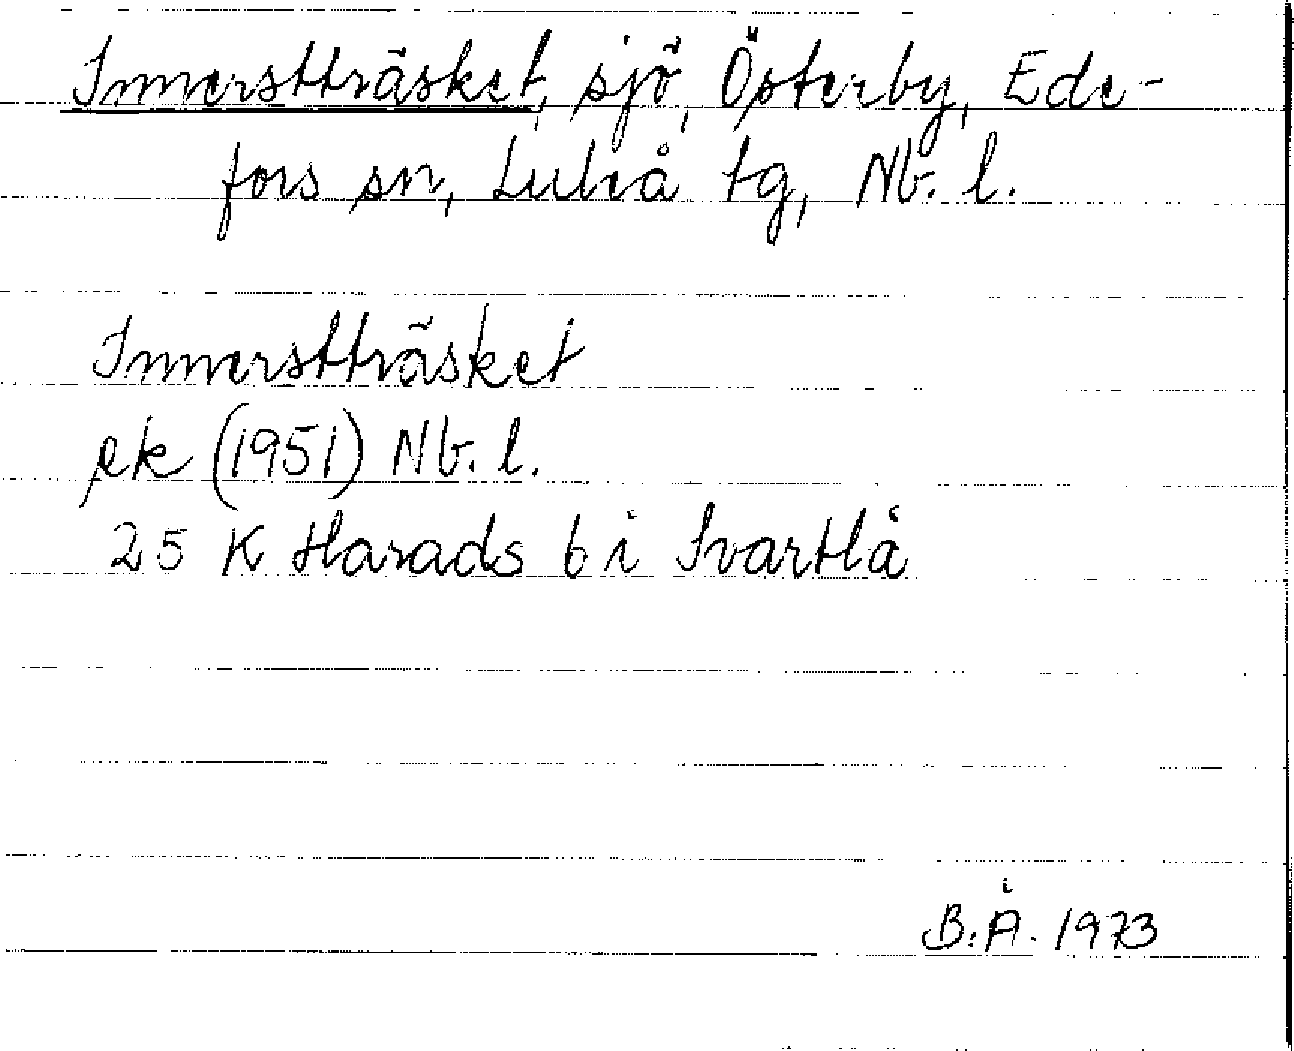 Innerstträsket, sjö, Österby, Ede-
fors sn, Luleå tg, Nb. l.
Innerstträsket
ek (1951) Nb. l.
25 K Harads 6 i Svartlå
B. Å. 1973